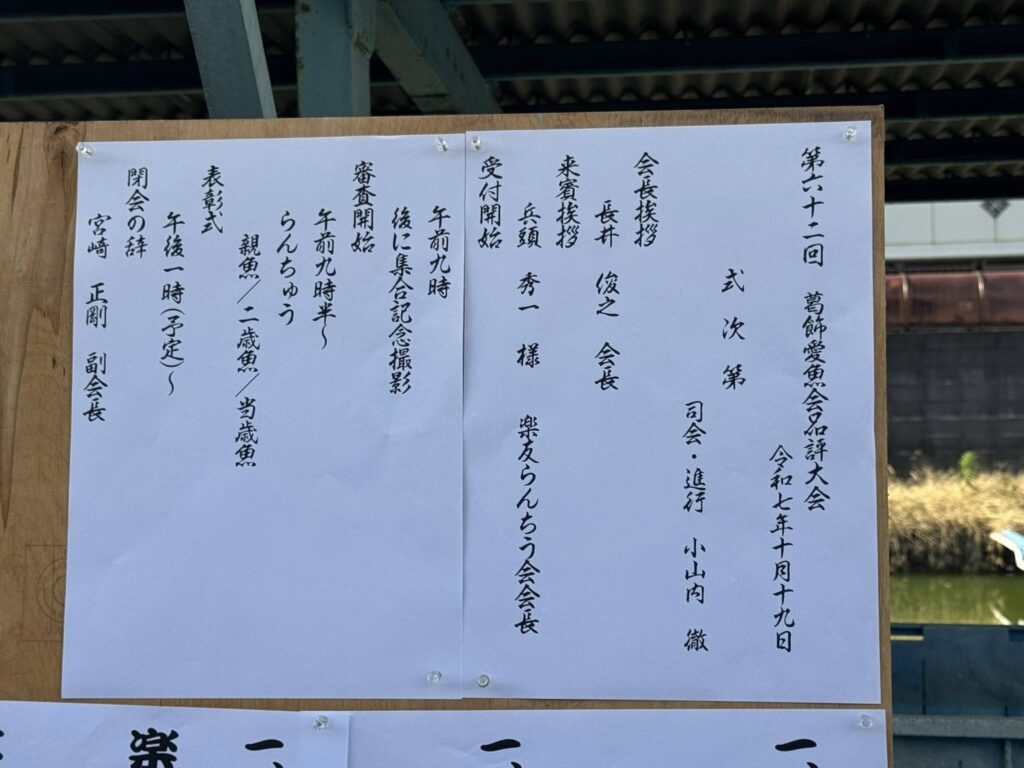 第六十二回 葛飾愛魚会品評大会
令和七年十月十九日
式次第
司会・進行 小山内 徹
会長挨拶
長井 俊之 会長
来賓挨拶
兵頭 秀一 様 楽友らんちう会会長
受付開始
午前九時
後に集合記念撮影
審査開始
午前九時半~
らんちゅう
親魚/二歳魚/当歳魚
表彰式
午後一時(予定)~
閉会の辞
宮崎 正剛 副会長
一、
一、
一、
楽